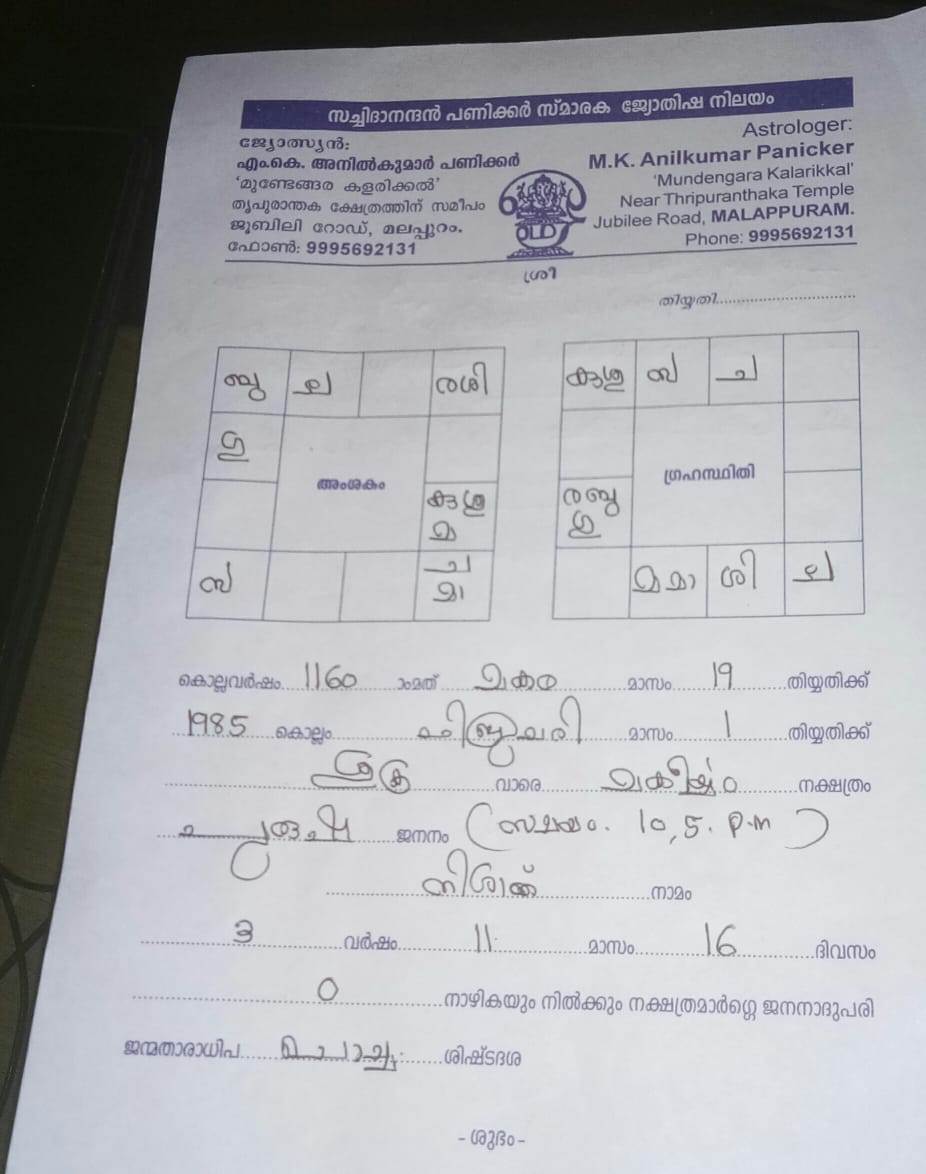 സച്ചിദാനന്ദൻ പണിക്കർ സ്മാരക ജ്യോതിഷ നിലയം
ജ്യോത്സ്യൻ:
എം.കെ. അനിൽകുമാർ പണിക്കർ
'മുണ്ടേങ്ങര കളരിക്കൽ'
തൃപുരാന്തക ക്ഷേത്രത്തിന് സമീപം
ജൂബിലി റോഡ്, മലപ്പുറം.
ഫോൺ: 9995692131
OLD
Astrologer:
M.K. Anilkumar Panicker
'Mundengara Kalarikkal'
Near Thripuranthaka Temple
Jubilee Road, MALAPPURAM.
Phone: 9995692131
ശ്രീ
തിയ്യതി
ബു ല രശി
ഗു
അംശകം
കുശു
മ
സ ച
മാ
കുശു സ ച
ഗ്രഹസ്ഥിതി
രബു
ഗു
മമാ ശി ല
കൊല്ലവർഷം 1160 ാംമത് മകരം മാസം 19 തിയ്യതിക്ക്
1985 കൊല്ലം ഫിബ്രുവരി മാസം 1 തിയ്യതിക്ക്
ശുക്ര വാരെ മകീര്യം നക്ഷത്രം
പുരുഷ ജനനം (സമയം. 10,5. P.M)
നിശാന്ത് നാമം
3 വർഷം 11 മാസം 16 ദിവസം
0 നാഴികയും നിൽക്കും നക്ഷത്രമാർഗ്ഗെ ജനനാദുപരി
ജന്മതാരാധിപ ചൊവ്വ ശിഷ്ടദശ
- ശുദം -